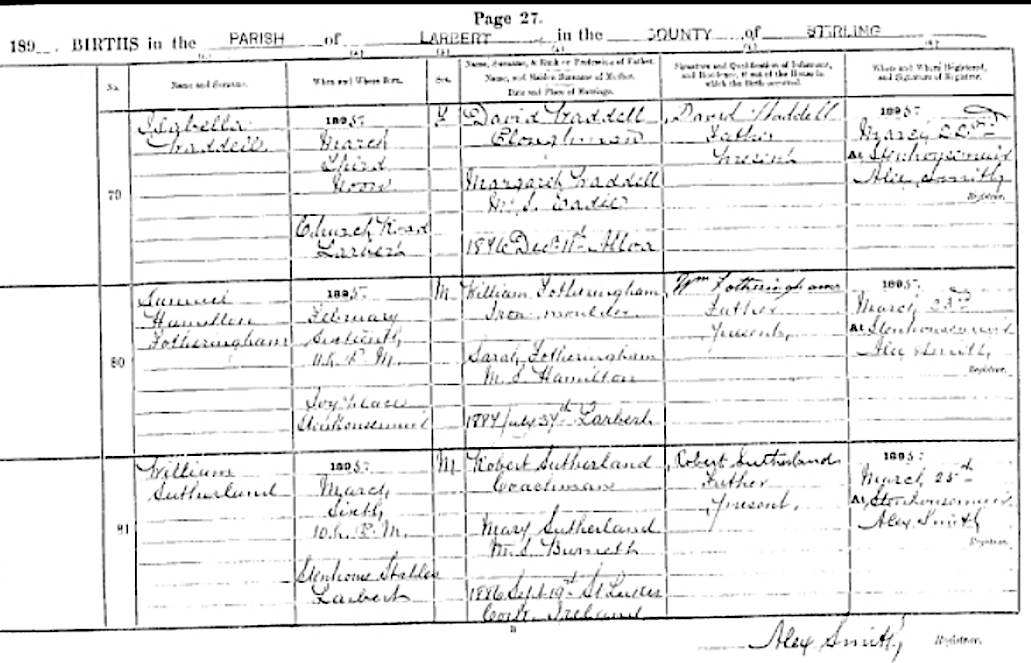 Page 27.
189 . BIRTHS in the PARISH of LARBERT in the COUNTY of STIRLING
No.
Name and Surname.
When and Where Born.
Sex.
Name, Surname, & Rank or Profession of Father.
Name, and Maiden Surname of Mother.
Date and Place of Marriage.
Signature and Qualification of Informant,
and Residence, if out of the House in
which the Birth occurred.
When and Where Registered,
and Signature of Registrar.
79
Isabella
Waddell
1895.
March
Third
Noon
Church Road
Larbert
F
David Waddell
Ploughman
Margaret Waddell
M.S. Eadie
Decr 11th Alloa
David Waddell
Father
Present
1895.
March
At Stenhousemuir
Alex Smith
Registrar.
80
Samuel
Hamilton
Fotheringham
1895.
February
P. M.
Place
Stenhousemuir
M
William Fotheringham
Iron moulder
Sarah Fotheringham
M.S. Hamilton
July Larbert
Wm Fotheringham
Father
present
1895.
March 23rd
At Stenhousemuir
Alex Smith
Registrar.
81
William
Sutherland
1895.
March
Sixth
10h. P. M.
Stenhouse Stables
Larbert
M
Robert Sutherland
Coachman
Mary Sutherland
M.S. Burneth
1886 Sept St Lukes
Cork, Ireland
Robert Sutherland
Father
present.
1895.
March 25th
At Stenhousemuir
Alex Smith
Registrar.
Alex Smith, Registrar.